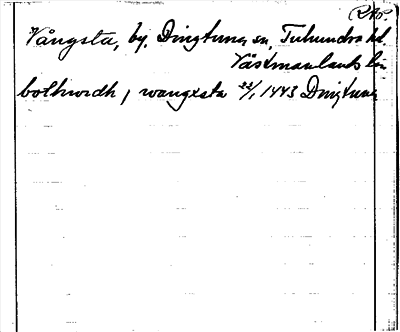 RAp.
Vångsta, by, Dingtuna sn, Tuhundra hd.
Västmanlands län
bothwidh j wangxsta 22/1 1443 Dingtuna